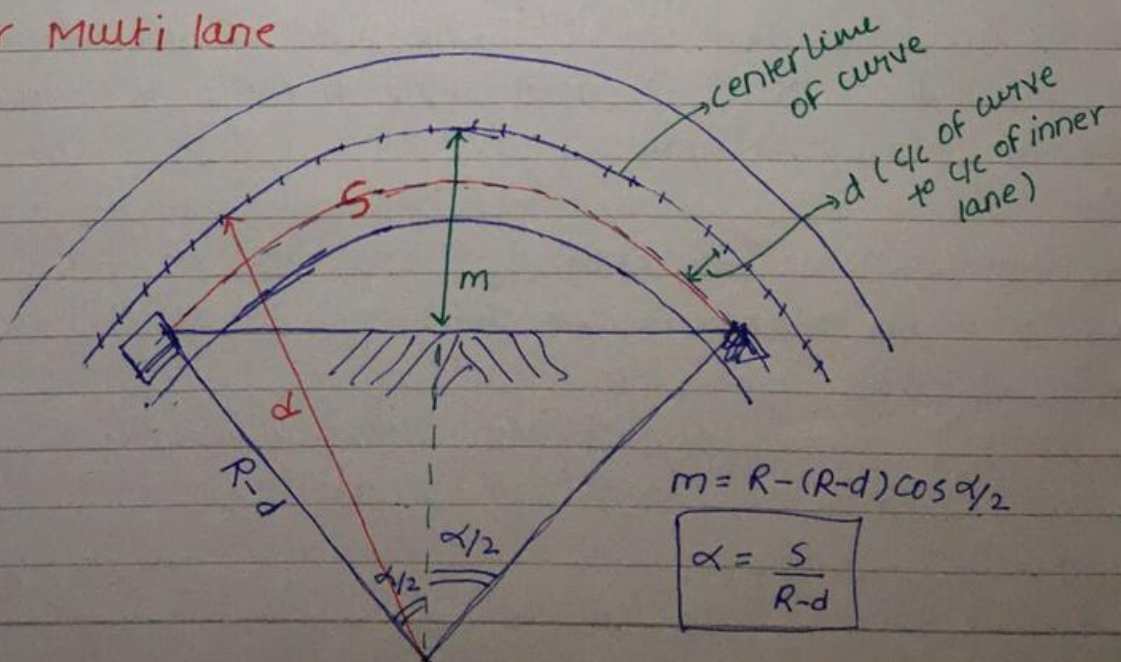 r Multi lane
centerline
of curve
d ( c/c of curve
to c/c of inner
lane)
S
m
d
R-d
α/2
α/2
m = R-(R-d) cos α/2
α = S
R-d